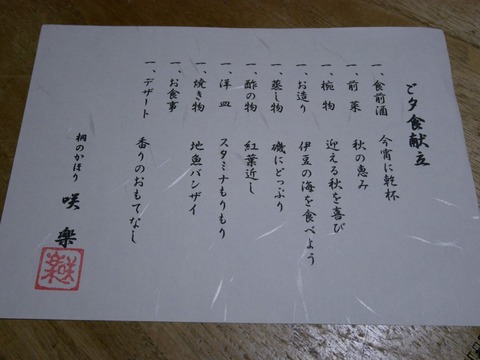 ご夕食献立
一、食前酒 今宵に乾杯
一、前菜 秋の恵み
一、椀物 迎える秋を喜び
一、お造り 伊豆の海を食べよう
一、蒸し物 磯にどっぷり
一、酢の物 紅葉近し
一、洋皿 スタミナもりもり
一、焼き物 地魚バンザイ
一、お食事
一、デザート 香りのおもてなし
桐のかほり 咲楽
咲楽